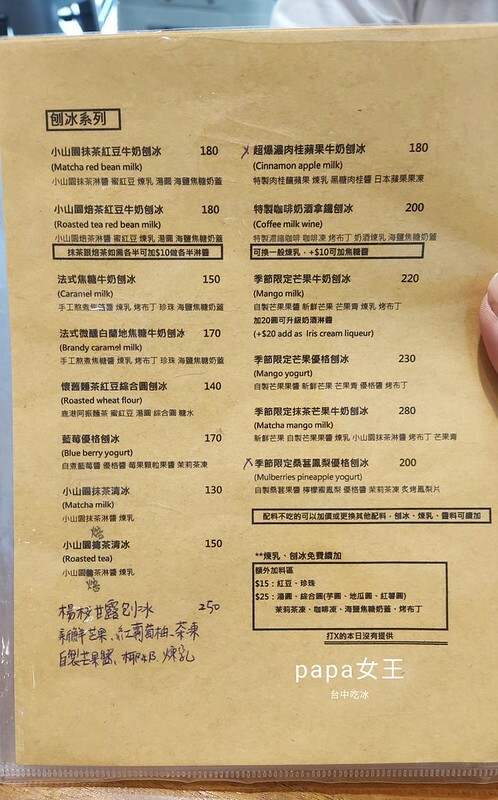 刨冰系列
小山園抹茶紅豆牛奶刨冰 180
(Matcha red bean milk)
小山園抹茶淋醬 蜜紅豆 煉乳 湯圓 海鹽焦糖奶蓋
小山園焙茶紅豆牛奶刨冰 180
(Roasted tea red bean milk)
小山園焙茶淋醬 蜜紅豆 煉乳 湯圓 海鹽焦糖奶蓋
抹茶跟焙茶如需各半可加$10做各半淋醬
法式焦糖牛奶刨冰 150
(Caramel milk)
手工熬煮焦糖醬 煉乳 烤布丁 珍珠 海鹽焦糖奶蓋
法式微醺白蘭地焦糖牛奶刨冰 170
(Brandy caramel milk)
手工熬煮焦糖醬 煉乳 烤布丁 珍珠 海鹽焦糖奶蓋
懷舊麵茶紅豆綜合圓刨冰 140
(Roasted wheat flour)
鹿港阿振麵茶 蜜紅豆 湯圓 綜合圓 糖水
藍莓優格刨冰 170
(Blue berry yogurt)
自煮藍莓醬 優格醬 莓果顆粒果醬 茉莉茶凍
小山園抹茶清冰 130
(Matcha milk)
小山園抹茶淋醬 煉乳
焙
小山園擣茶清冰 150
(Roasted tea)
小山園焙茶淋醬 煉乳
楊枝甘露刨冰 250
新鮮芒果、紅葡萄柚、茶凍
自製芒果醬、椰奶、煉乳
X 超爆濃肉桂蘋果牛奶刨冰 180
(Cinnamon apple milk)
特製肉桂釀蘋果 煉乳 黑糖肉桂醬 日本蘋果果凍
特製咖啡奶酒拿鐵刨冰 200
(Coffee milk wine)
特製濃縮咖啡 咖啡凍 烤布丁 奶酒煉乳 海鹽焦糖奶蓋
可換一般煉乳，+$10可加焦糖醬
季節限定芒果牛奶刨冰 220
(Mango milk)
自製芒果果醬 新鮮芒果 芒果青 煉乳 烤布丁
加20圓可升級奶酒淋醬
(+$20 add as Iris cream liqueur)
季節限定芒果優格刨冰 230
(Mango yogurt)
自製芒果果醬 新鮮芒果 芒果青 優格醬 烤布丁
季節限定抹茶芒果牛奶刨冰 280
(Matcha mango milk)
新鮮芒果 自製芒果果醬 煉乳 小山園抹茶淋醬 烤布丁 芒果青
X 季節限定桑葚鳳梨優格刨冰 200
(Mulberries pineapple yogurt)
自製桑葚果醬 檸檬蜜鳳梨 優格醬 茉莉茶凍 炙烤鳳梨片
配料不吃的可以加價或更換其他配料，刨冰、煉乳、醬料可續加
**煉乳、刨冰免費續加
額外加料區
$15：紅豆、珍珠
$25：湯圓、綜合圓(芋圓、地瓜圓、紅薯圓)
茉莉茶凍、咖啡凍、海鹽焦糖奶蓋、烤布丁
打X的本日沒有提供
papa女王
台中吃冰